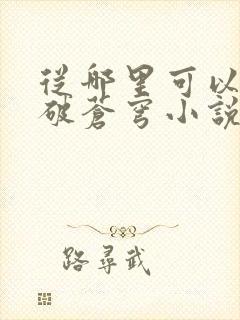 從哪里可以
破蒼穹小說
路尋武